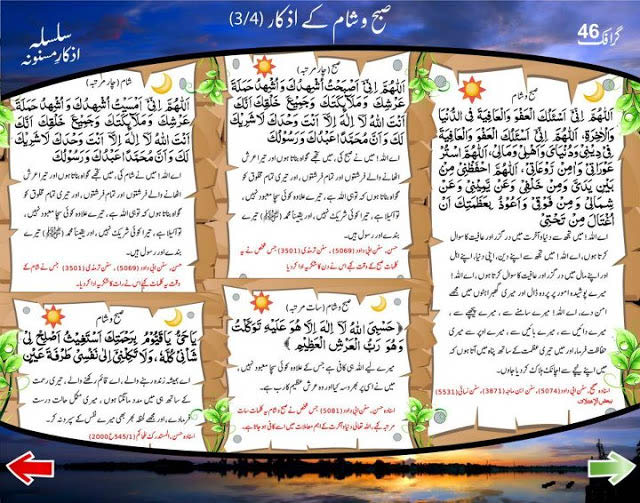 صبح و شام کے اذکار (3/4)
گرافک 46
سلسلہ
اذکارِ مسنونہ
صبح و شام
اَللّٰهُمَّ اِنِّیْ اَسْئَلُكَ الْعَفْوَ وَالْعَافِیَةَ فِی الدُّنْیَا
وَالْاٰخِرَةِ، اَللّٰهُمَّ اِنِّیْ اَسْئَلُكَ الْعَفْوَ وَالْعَافِیَةَ
فِیْ دِیْنِیْ وَدُنْیَایَ وَاَهْلِیْ وَمَالِیْ، اَللّٰهُمَّ اسْتُرْ
عَوْرَاتِیْ وَاٰمِنْ رَّوْعَاتِیْ، اَللّٰهُمَّ احْفَظْنِیْ مِنْ
بَیْنِ یَدَیَّ وَمِنْ خَلْفِیْ وَعَنْ یَّمِیْنِیْ وَعَنْ
شِمَالِیْ وَمِنْ فَوْقِیْ وَاَعُوْذُ بِعَظَمَتِكَ اَنْ
اُغْتَالَ مِنْ تَحْتِیْ
اے اللہ! میں تجھ سے دنیا و آخرت میں درگزر اور عافیت کا سوال
کرتا ہوں، اے اللہ! میں تجھ سے اپنے دین، اپنی دنیا، اپنے اہل
اور اپنے مال میں درگزر اور عافیت کا سوال کرتا ہوں، اے اللہ!
میرے پوشیدہ امور پر پردہ ڈال اور میری گھبراہٹوں میں مجھے
امن دے، اے اللہ! میرے سامنے سے، میرے پیچھے سے،
میرے دائیں سے، میرے بائیں سے، میرے اوپر سے میری
حفاظت فرما، اور میں تیری عظمت کے ساتھ پناہ میں آتا ہوں کہ
میں اپنے نیچے سے اچانک ہلاک کر دیا جاؤں۔
اسنادہ صحیح، سنن ابی داود (5074)، سنن ابن ماجہ (3871)، سنن نسائی (5531)
صبح (چار مرتبہ)
اَللّٰهُمَّ اِنِّیْ اَصْبَحْتُ اُشْهِدُكَ وَ اُشْهِدُ حَمَلَةَ
عَرْشِكَ وَ مَلَآئِكَتَكَ وَ جَمِیْعَ خَلْقِكَ اَنَّكَ
اَنْتَ اللّٰهُ لَا اِلٰهَ اِلَّا اَنْتَ وَحْدَكَ لَا شَرِیْكَ
لَكَ وَ اَنَّ مُحَمَّدًا عَبْدُكَ وَ رَسُوْلُكَ
اے اللہ! میں نے صبح کی، میں تجھے گواہ بناتا ہوں اور تیرا عرش
اٹھانے والے فرشتوں اور تمام فرشتوں، اور تیری تمام مخلوق کو
گواہ بناتا ہوں کہ تو ہی اللہ ہے، تیرے علاوہ کوئی سچا معبود نہیں،
تو اکیلا ہے، تیرا کوئی شریک نہیں، اور یقیناً محمد (ﷺ) تیرے
بندے اور رسول ہیں۔
حسن، سنن ابی داود (5069)، سنن ترمذی (3501) جس شخص نے یہ
کلمات صبح کے وقت کہے تو اس نے دن کا شکریہ ادا کر دیا۔
شام (چار مرتبہ)
اَللّٰهُمَّ اِنِّیْ اَمْسَیْتُ اُشْهِدُكَ وَ اُشْهِدُ حَمَلَةَ
عَرْشِكَ وَ مَلَآئِكَتَكَ وَ جَمِیْعَ خَلْقِكَ اَنَّكَ
اَنْتَ اللّٰهُ لَا اِلٰهَ اِلَّا اَنْتَ وَحْدَكَ لَا شَرِیْكَ
لَكَ وَ اَنَّ مُحَمَّدًا عَبْدُكَ وَ رَسُوْلُكَ
اے اللہ! میں نے شام کی، میں تجھے گواہ بناتا ہوں اور تیرا عرش
اٹھانے والے فرشتوں اور تمام فرشتوں، اور تیری تمام مخلوق کو
گواہ بناتا ہوں کہ تو ہی اللہ ہے، تیرے علاوہ کوئی سچا معبود نہیں،
تو اکیلا ہے، تیرا کوئی شریک نہیں، اور یقیناً محمد (ﷺ) تیرے
بندے اور رسول ہیں۔
حسن، سنن ابی داود (5069)، سنن ترمذی (3501) جس نے شام کے
وقت یہ کلمات کہے تو اس نے رات کا شکریہ ادا کر دیا۔
صبح و شام (سات مرتبہ)
﴿حَسْبِیَ اللّٰهُ لَا اِلٰهَ اِلَّا هُوَ عَلَیْهِ تَوَكَّلْتُ
وَهُوَ رَبُّ الْعَرْشِ الْعَظِیْمِ﴾
میرے لیے اللہ ہی کافی ہے، جس کے علاوہ کوئی سچا معبود نہیں،
میں نے اسی پر بھروسہ کیا اور وہ عرش عظیم کا رب ہے۔
اسنادہ حسن، سنن ابی داود (5081) جس شخص نے صبح و شام یہ کلمات سات
مرتبہ کہے، اللہ تعالیٰ دنیا و آخرت کے اہم معاملات میں اسے کافی ہو جاتا ہے۔
صبح و شام
یَا حَیُّ یَا قَیُّوْمُ بِرَحْمَتِكَ اَسْتَغِیْثُ اَصْلِحْ لِیْ
شَاْنِیْ كُلَّهُ، وَلَا تَكِلْنِیْ اِلٰی نَفْسِیْ طَرْفَةَ عَیْنٍ
اے ہمیشہ زندہ رہنے والے، اے قائم رکھنے والے، تیری رحمت
کے ساتھ ہی میں مدد مانگتا ہوں، تو میری مکمل حالت درست
فرما دے، اور مجھے لحظہ بھر بھی میرے نفس کے سپرد نہ کر۔
اسنادہ حسن، المستدرک للحاکم (545/1 ح 2000)